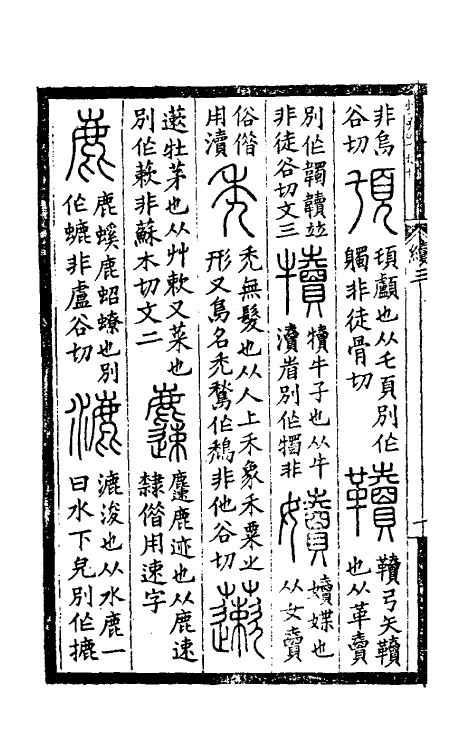 非烏
谷切
𩑒顱也从乇頁別作
髑非徒骨切
韇
韇弓矢韇
也从革賣
別作韣韥竝
非徒谷切文三
犢
犢牛子也从牛
瀆省別作犢非
嬻
嬻媟也
从女賣
俗借
用瀆
禿
禿無髮也从人上禾象禾粟之
形又鳥名禿鶖作鵚非他谷切
藗
藗牡茅也从艸欶又菜也
別作蔌非蘇木切文二
䴢
䴢鹿迹也从鹿速
隸借用速字
鹿
鹿螇鹿蛁蟟也別
作螰非盧谷切
漉
漉浚也从水鹿一
曰水下皃別作摝
續三